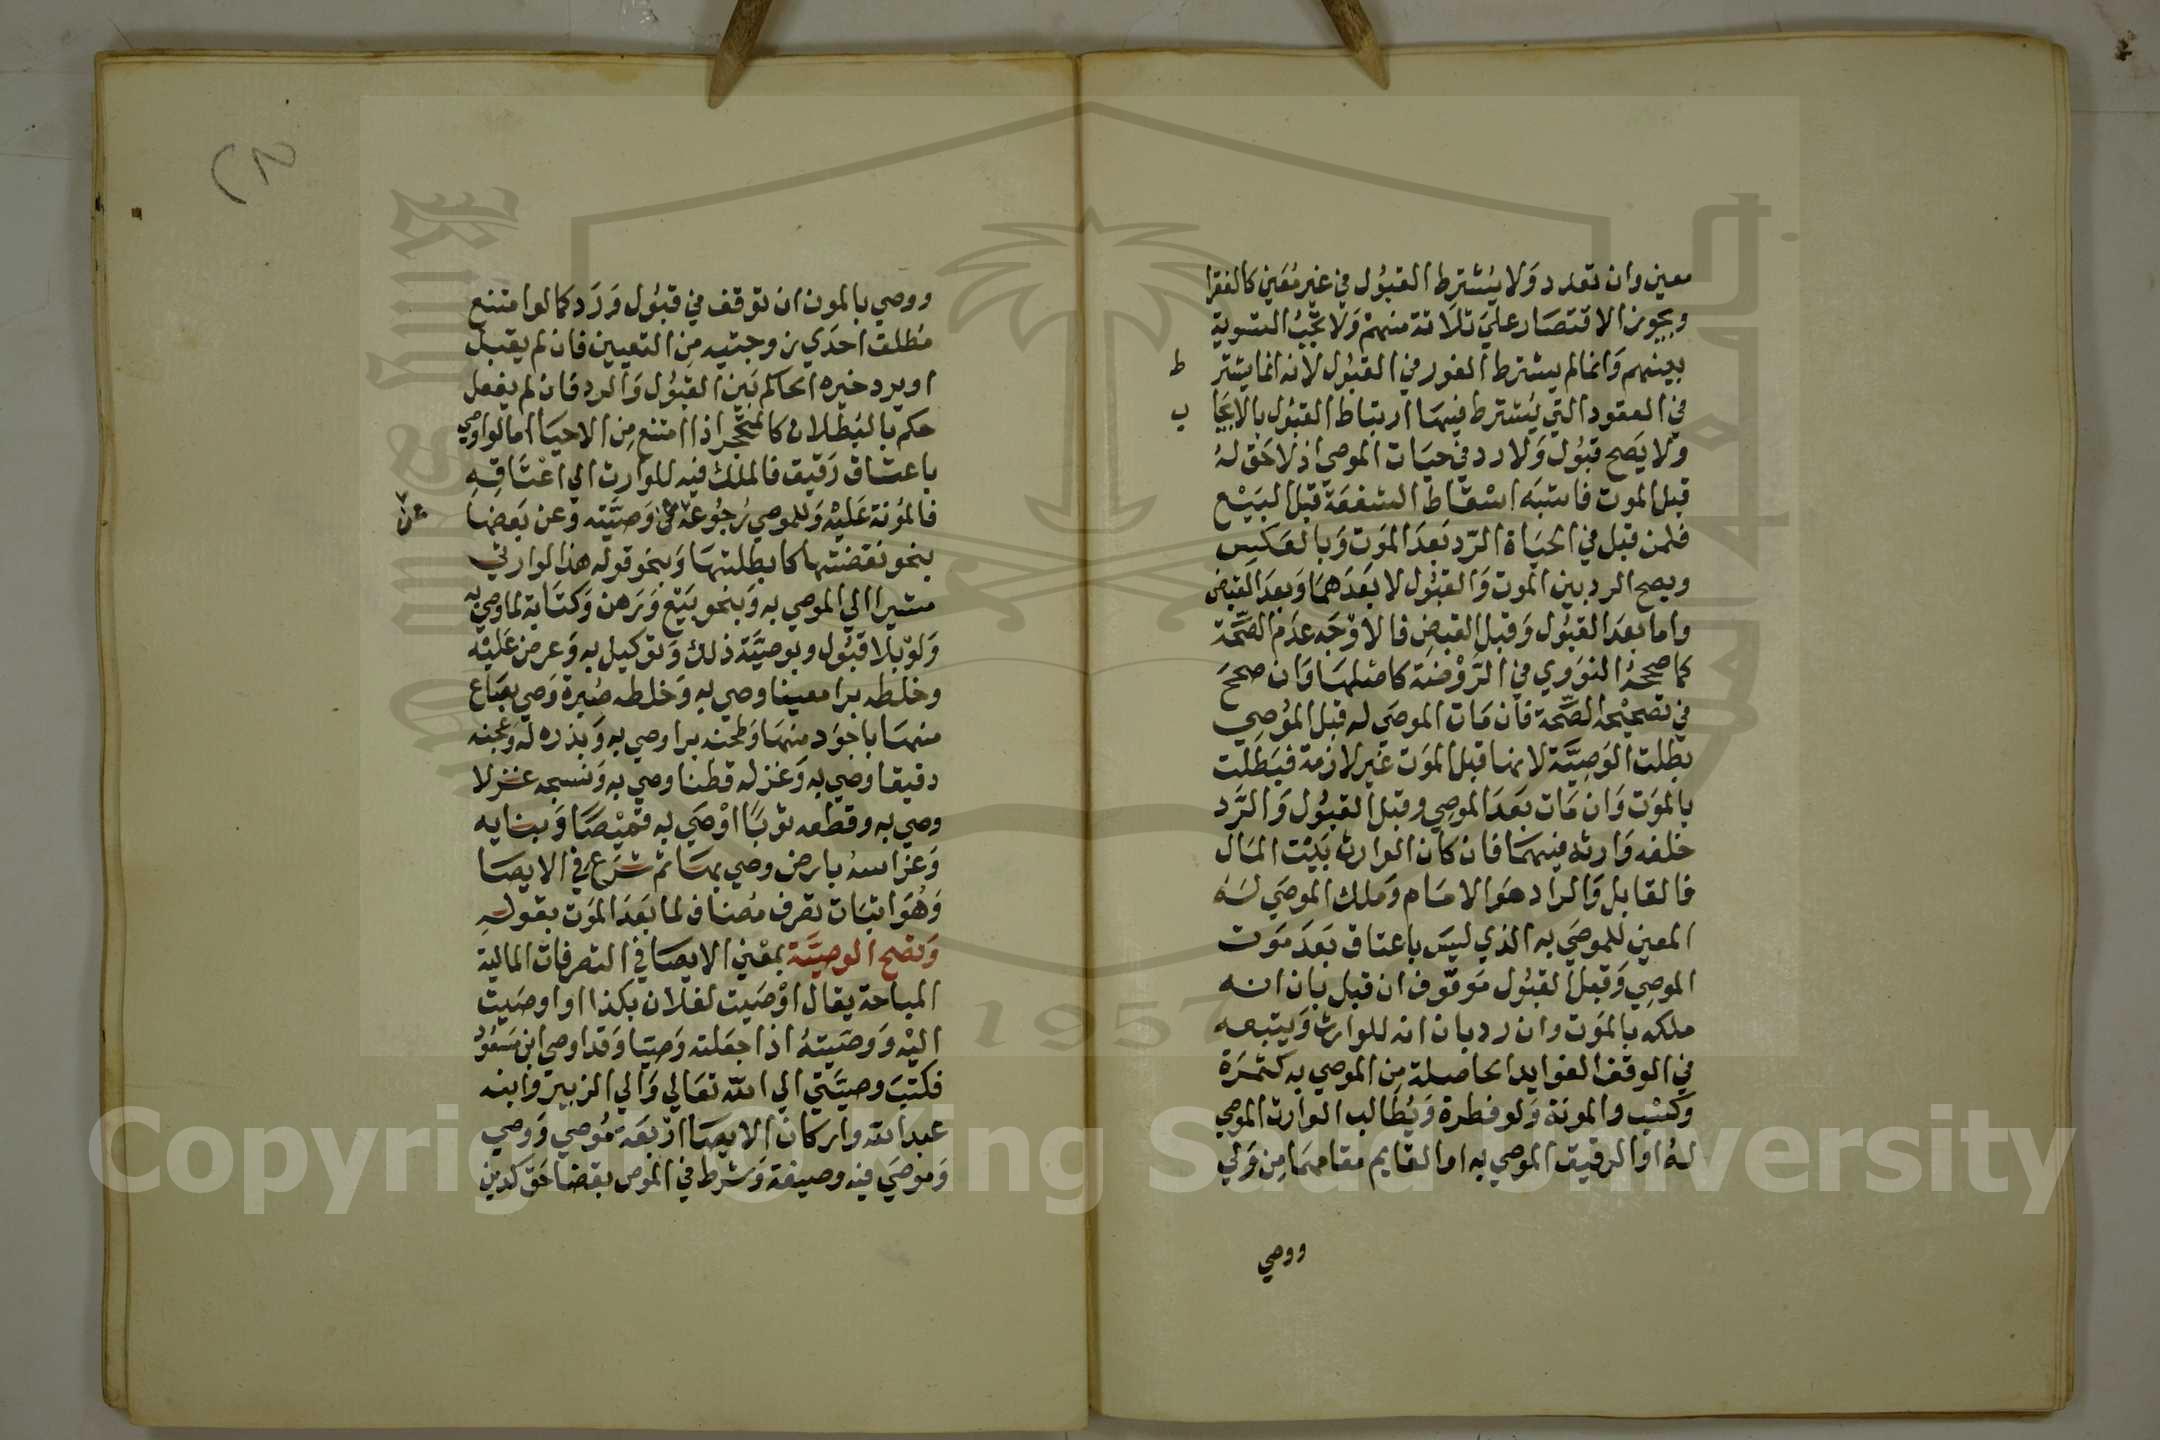 معين وان تعدد ولا يشترط القبول في غير معين كالفقرا
ويجوز الاقتصار علي ثلاثة منهم ولا تجب التسوية
بينهم وانما لم يشترط الفور في القبول لانه انما يشتر ط
في العقود التي يشترط فيها ارتباط القبول بالايجا ب
ولا يصح قبول ولا رد في حيات الموصي اذ لا حق له
قبل الموت فاشبه اسقاط الشفعة قبل البيع
فلمن قبل في الحياة الرد بعد الموت وبالعكس
ويصح الرد بين الموت والقبول لا بعدهما وبعد القبض
واما بعد القبول وقبل القبض فالاوجه عدم الصحة
كما صححه النووي في الروضة كاصلها وان صحح
في تصحيحه الصحة فان مات الموصي له قبل الموصي
بطلت الوصية لانها قبل الموت غير لازمة فبطلت
بالموت وان مات بعد الموصي وقبل القبول والرد
خلفه وارثه فيهما فان كان الوارث بيت المال
فالقابل والراد هو الامام وملك الموصي له
المعين للموصي به الذي ليس باعتاق بعد موت
الموصي وقبل القبول موقوف ان قبل بان انه
ملكه بالموت وان رد بان انه للوارث ويتبعه
في الوقف الفوايد الحاصلة من الموصي به كثمرة
وكسب والمونة ولو فطرة ويطالب الوارث الموصي
له او الرقيق الموصي به او القايم مقامهما من ولي
ووصي
ووصي بالمون ان توقف في قبول ورد كما لو امتنع
مطلق احدي زوجتيه من التعيين فان لم يقبل
او يرد خيره الحاكم بين القبول والرد فان لم يفعل
حكم بالبطلان كالمتحجر اذا امتنع من الاحيا اما لو اوصي
باعتاق رقيق فالملك فيه للوارث الي اعتاقه
فالمؤنة عليه وللموصي رجوع عن وصيته وعن بعضها
عن
بنحو نقضتها كابطلتها وبنحو قوله هذا لوارثي
مشيرا الي الموصي به وبنحو بيع ورهن وكتابة لما وصي به
ولو بلا قبول وبوصية ذلك وتوكيل به وعرض عليه
وخلطه برا معينا وصي به وخلطه صبرة وصي بصاع
منها باجود منها وطحنه برا وصي به وبذره له وعجنه
دقيقا وصي به وغزله قطنا وصي به ونسجه غزلا
وصي به وقطعه ثوبا اوصي به قميصا وبنايه
وغراسه بارض وصي بها ثم شرع في الايصا
وهو اثبات تصرف مضاف لما بعد الموت بقوله
وتصح الوصية بمعني الايصا في التصرفات المالية
المباحة يقال اوصيت لفلان بكذا او اوصيت
اليه ووصيته اذا جعلته وصيا وقد اوصي ابن مسعود
فكتب وصيتي الي الله تعالي والي الزبير وابنه
عبد الله واركان الايصا اربعة موصي ووصي
وموصي فيه وصيغة وشرط في الموصي بقضا حق كدين
1957
Copyright © King Saud University